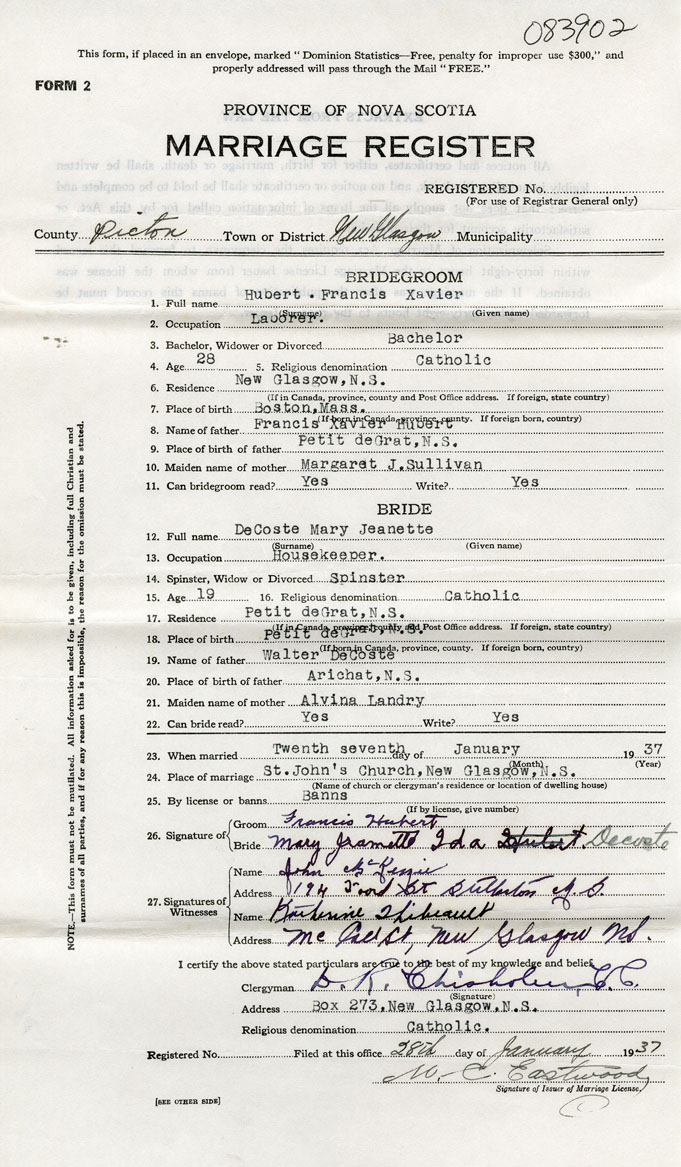 083902
This form, if placed in an envelope, marked "Dominion Statistics—Free, penalty for improper use $300," and
properly addressed will pass through the Mail "FREE."
FORM 2
PROVINCE OF NOVA SCOTIA
MARRIAGE REGISTER
REGISTERED No.
(For use of Registrar General only)
County Pictou Town or District New Glasgow Municipality
BRIDEGROOM
1. Full name Hubert. Francis Xavier
(Surname) (Given name)
2. Occupation Laborer.
3. Bachelor, Widower or Divorced Bachelor
4. Age 28 5. Religious denomination Catholic
6. Residence New Glasgow,N.S.
(If in Canada, province, county and Post Office address. If foreign, state country)
7. Place of birth Boston,Mass.
(If born in Canada, province, county. If foreign born, country)
8. Name of father Francis Xavier Hubert
9. Place of birth of father Petit deGrat,N.S.
10. Maiden name of mother Margaret J.Sullivan
11. Can bridegroom read? Yes Write? Yes
BRIDE
12. Full name DeCoste Mary Jeanette
(Surname) (Given name)
13. Occupation Housekeeper.
14. Spinster, Widow or Divorced Spinster
15. Age 19 16. Religious denomination Catholic
17. Residence Petit deGrat,N.S.
(If in Canada, province, county and Post Office address. If foreign, state country)
18. Place of birth Petit deGrat,N.S.
(If born in Canada, province, county. If foreign born, country)
19. Name of father Walter DeCoste
20. Place of birth of father Arichat,N.S.
21. Maiden name of mother Alvina Landry
22. Can bride read? Yes Write? Yes
23. When married Twenth seventh day of January 1937
(Month) (Year)
24. Place of marriage St.John's Church,New Glasgow,N.S.
(Name of church or clergyman's residence or location of dwelling house)
25. By license or banns Banns
(If by license, give number)
26. Signature of Groom Francis Hubert
Bride Mary Jeanette Ida Hubert Decoste
27. Signatures of Witnesses
Name John McKenzie
Address 194 Foord St Stellarton N.S.
Name Katherine Thibeault
Address St, New Glasgow NS.
I certify the above stated particulars are true to the best of my knowledge and belief.
Clergyman D. R. Chisholm, C.C.
(Signature)
Address Box 273,New Glasgow,N.S.
Religious denomination Catholic.
Registered No. Filed at this office 28th day of January 1937
M. C. Eastwood
Signature of Issuer of Marriage License.
[SEE OTHER SIDE]
NOTE.—This form must not be mutilated. All information asked for is to be given, including full Christian and
surnames of all parties, and if for any reason this is impossible, the reason for the omission must be stated.